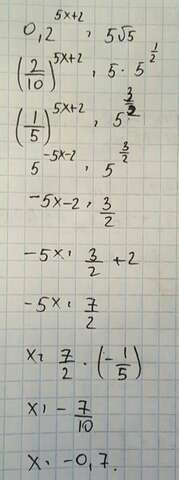 0,2^(5x+2) = 5√5
(2/10)^(5x+2) = 5 · 5^(1/2)
(1/5)^(5x+2) = 5^(3/2)
5^(-5x-2) = 5^(3/2)
-5x-2 = 3/2
-5x = 3/2 + 2
-5x = 7/2
x = 7/2 · (-1/5)
x = - 7/10
x = -0,7.